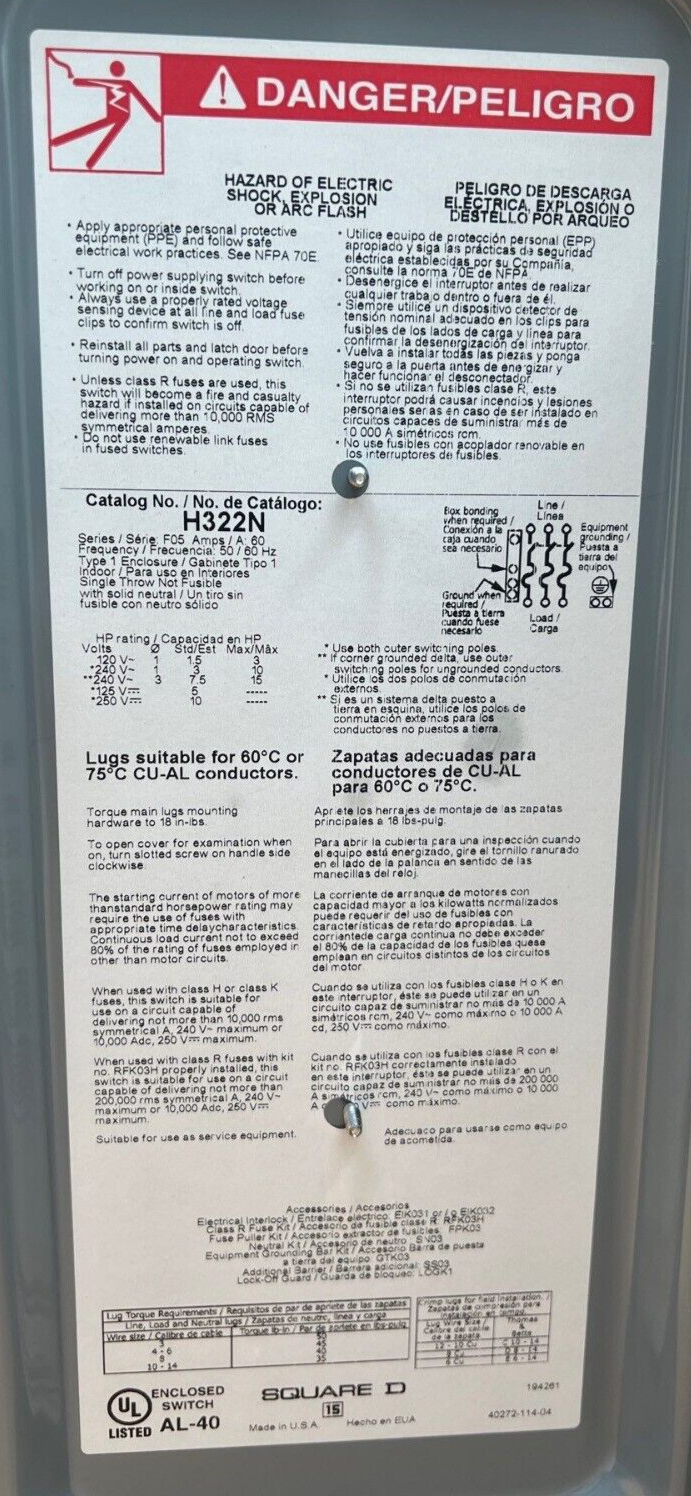 DANGER/PELIGRO
HAZARD OF ELECTRIC
SHOCK, EXPLOSION
OR ARC FLASH
• Apply appropriate personal protective
equipment (PPE) and follow safe
electrical work practices. See NFPA 70E.
• Turn off power supplying switch before
working on or inside switch.
• Always use a properly rated voltage
sensing device at all line and load fuse
clips to confirm switch is off.
• Reinstall all parts and latch door before
turning power on and operating switch.
• Unless class R fuses are used, this
switch will become a fire and casualty
hazard if installed on circuits capable of
delivering more than 10,000 RMS
symmetrical amperes.
• Do not use renewable link fuses
in fused switches.
PELIGRO DE DESCARGA
ELÉCTRICA, EXPLOSIÓN O
DESTELLO POR ARQUEO
• Utilice equipo de protección personal (EPP)
apropiado y siga las prácticas de seguridad
eléctrica establecidas por su Compañía,
consulte la norma 70E de NFPA.
• Desenergice el interruptor antes de realizar
cualquier trabajo dentro o fuera de él.
• Siempre utilice un dispositivo detector de
tensión nominal adecuado en los clips para
fusibles de los lados de carga y línea para
confirmar la desenergización del interruptor.
• Vuelva a instalar todas las piezas y ponga
seguro a la puerta antes de energizar y
hacer funcionar el desconectador.
• Si no se utilizan fusibles clase R, este
interruptor podrá causar incendios y lesiones
personales serias en caso de ser instalado en
circuitos capaces de suministrar más de
10 000 A simétricos rcm.
• No use fusibles con acoplador renovable en
los interruptores de fusibles.
Catalog No. / No. de Catálogo:
H322N
Series / Série: F05 Amps / A: 60
Frequency / Frecuencia: 50 / 60 Hz
Type 1 Enclosure / Gabinete Tipo 1
Indoor / Para uso en Interiores
Single Throw Not Fusible
with solid neutral / Un tiro sin
fusible con neutro sólido
Box bonding
when required /
Conexión a la
caja cuando
sea necesario
Ground when
required /
Puesta a tierra
cuando fuese
necesario
Line /
Línea
Load /
Carga
Equipment
grounding /
Puesta a
tierra del
equipo
HP rating / Capacidad en HP
Volts Ø Std/Est Max/Máx
120 V~ 1 1.5 3
*240 V~ 1 3 10
**240 V~ 3 7.5 15
*125 V⎓ 5 -----
*250 V⎓ 10 -----
* Use both outer switching poles.
** If corner grounded delta, use outer
switching poles for ungrounded conductors.
* Utilice los dos polos de conmutación
externos.
** Si es un sistema delta puesto a
tierra en esquina, utilice los polos de
conmutación externos para los
conductores no puestos a tierra.
Lugs suitable for 60°C or
75°C CU-AL conductors.
Zapatas adecuadas para
conductores de CU-AL
para 60°C o 75°C.
Torque main lugs mounting
hardware to 18 in-lbs.
Apriete los herrajes de montaje de las zapatas
principales a 18 lbs-pulg.
To open cover for examination when
on, turn slotted screw on handle side
clockwise.
Para abrir la cubierta para una inspección cuando
el equipo está energizado, gire el tornillo ranurado
en el lado de la palanca en sentido de las
manecillas del reloj.
The starting current of motors of more
thanstandard horsepower rating may
require the use of fuses with
appropriate time delaycharacteristics.
Continuous load current not to exceed
80% of the rating of fuses employed in
other than motor circuits.
La corriente de arranque de motores con
capacidad mayor a los kilowatts normalizados
puede requerir del uso de fusibles con
características de retardo apropiadas. La
corrientede carga continua no debe exceder
el 80% de la capacidad de los fusibles quese
emplean en circuitos distintos de los circuitos
del motor
When used with class H or class K
fuses, this switch is suitable for
use on a circuit capable of
delivering not more than 10,000 rms
symmetrical A, 240 V~ maximum or
10,000 Adc, 250 V⎓ maximum.
Cuando se utiliza con los fusibles clase H o K en
este interruptor, éste se puede utilizar en un
circuito capaz de suministrar no más de 10 000 A
simétricos rcm, 240 V~ como máximo o 10 000 A
cd, 250 V⎓ como máximo.
When used with class R fuses with kit
no. RFK03H properly installed, this
switch is suitable for use on a circuit
capable of delivering not more than
200,000 rms symmetrical A, 240 V~
maximum or 10,000 Adc, 250 V⎓
maximum.
Cuando se utiliza con los fusibles clase R con el
kit no. RFK03H correctamente instalado
en este interruptor, éste se puede utilizar en un
circuito capaz de suministrar no más de 200 000
A simétricos rcm, 240 V~ como máximo o 10 000
A V⎓ como máximo.
Suitable for use as service equipment.
Adecuado para usarse como equipo
de acometida.
Accessories / Accesorios
Electrical Interlock / Entrelace eléctrico: EIK031 or / o EIK032
Class R Fuse Kit / Accesorio de fusible clase R: RFK03H
Fuse Puller Kit / Accesorio extractor de fusibles: FPK03
Neutral Kit / Accesorio de neutro: SN03
Equipment Grounding Bar Kit / Accesorio Barra de puesta
a tierra del equipo: GTK03
Additional Barrier / Barrera adicional: SS03
Lock-Off Guard / Guarda de bloqueo: LOGK1
Lug Torque Requirements / Requisitos de par de apriete de las zapatas
Line, Load and Neutral lugs / Zapatas de neutro, línea y carga
Wire size / Calibre de cable Torque lb-in / Par de apriete en lbs-pulg
3 50
4 - 6 45
8 40
10 - 14 35
Crimp lugs for field installation. /
Zapatas de compresión para
instalación en campo.
Lug Wire Size /
Calibre del cable
de la zapata
Thomas
&
Betts
12 - 10 Cu C 10 - 14
8 Cu D 8 - 14
6 Cu E 6 - 14
UL
LISTED
ENCLOSED
SWITCH
AL-40
SQUARE D
15
Made in U.S.A. Hecho en EUA
194261
40272-114-04